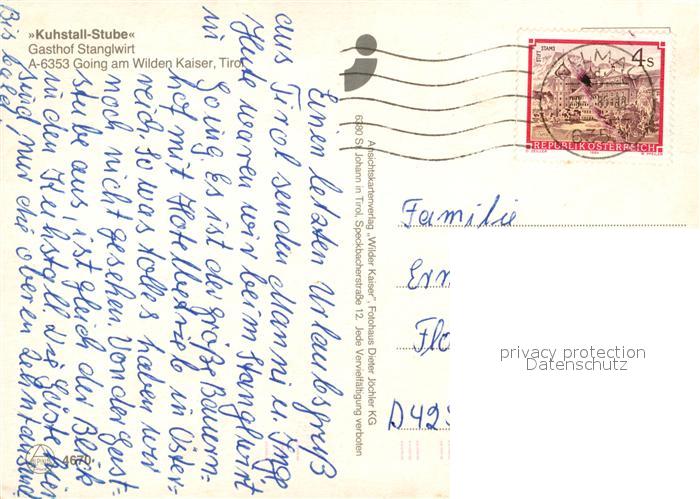 »Kuhstall-Stube«
Gasthof Stanglwirt
A-6353 Going am Wilden Kaiser, Tirol
Einen letzten Urlaubsgruß
aus Tirol senden Manni u. Inge
Heute waren wir beim Stanglwirt
in Going. Es ist der größte Bauern-
hof mit Hotelbetrieb in Öster-
reich. So was tolles haben wir
noch nicht gesehen. Von der Gast-
stube aus ist gleich der Blick
in den Kuhstall. Die Gäste hier
sind nur die oberen Zehntausend
Bis bald
Ansichtskartenverlag „Wilder Kaiser", Fotohaus Dieter Jöchler KG
6380 St. Johann in Tirol, Speckbacherstraße 12. Jede Vervielfältigung verboten
STIFT STAMS
4 S
REPUBLIK ÖSTERREICH
Familie
Flo
D42
privacy protection
Datenschutz
4670